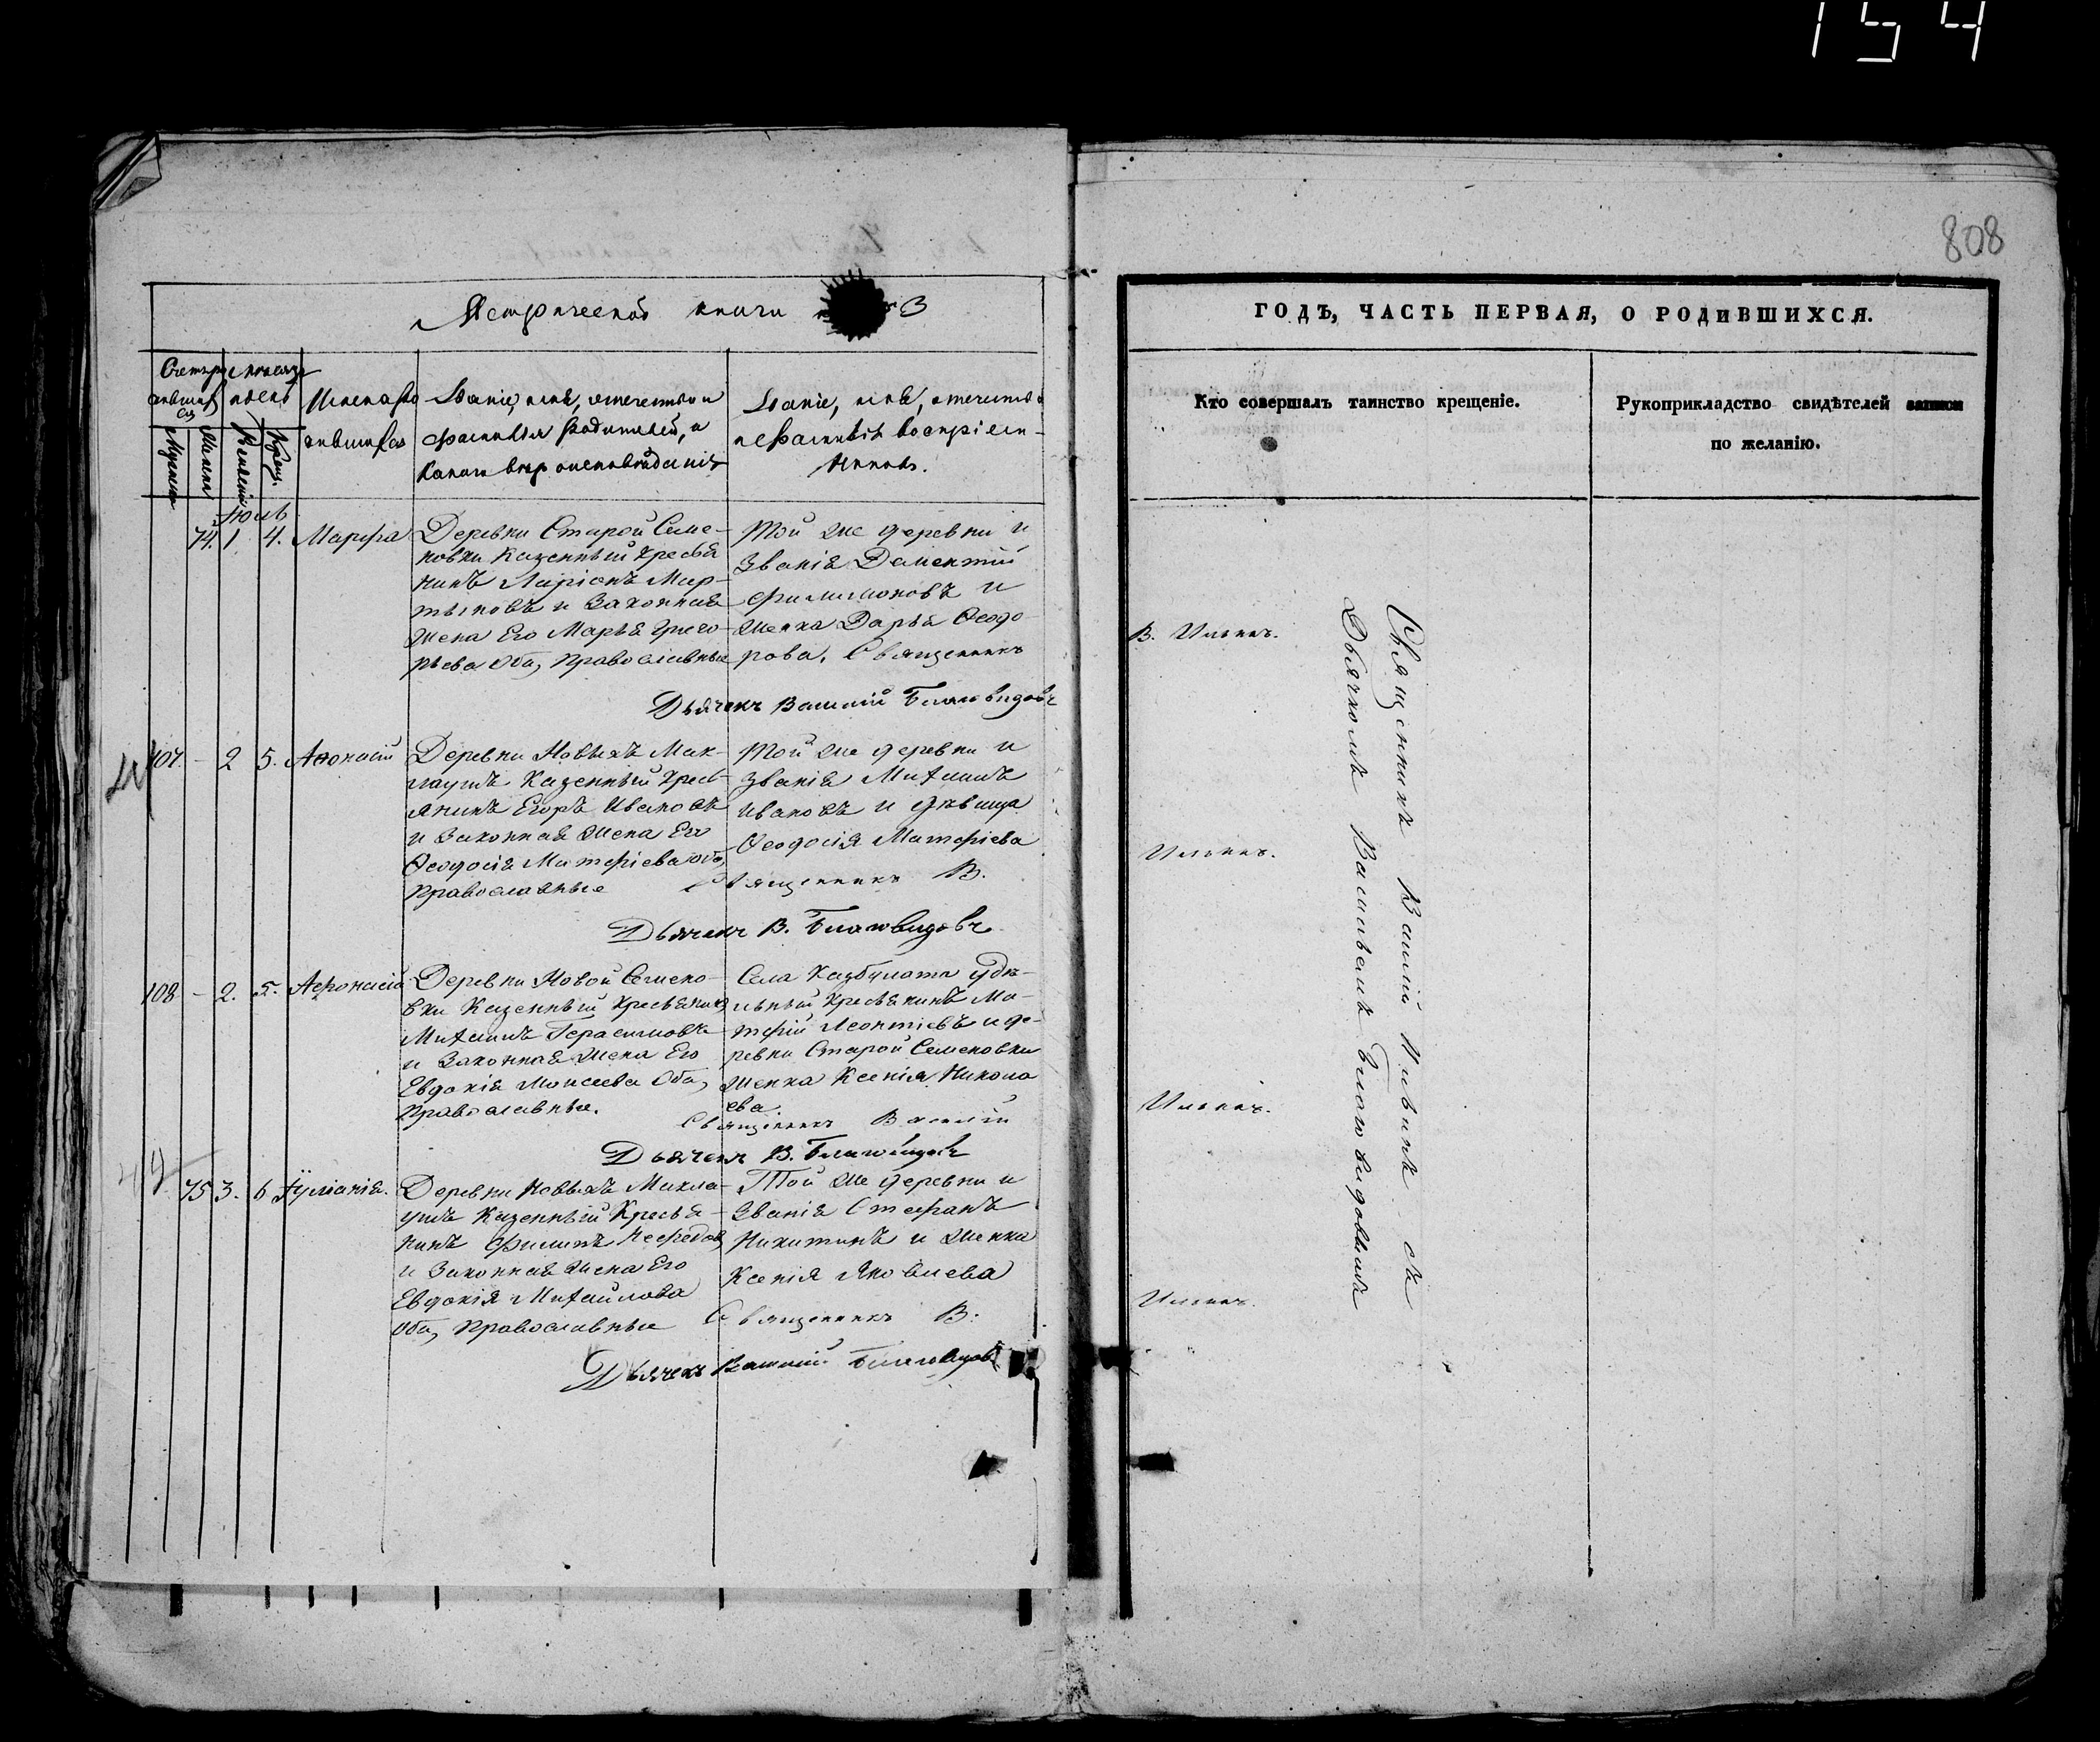 154
808
Метрической книги
Счетъ ро
дивших
ся
Мужеска
Женска
Мѣсяцъ
и день
Рожденія
Крещ.
Имена ро
дившихся
Званіе, имя, отечество и
фамилія родителей, и
какого вѣроисповѣданія
Званіе, имя, отечество
и фамилія воспріем-
никовъ.
ГОДЪ, ЧАСТЬ ПЕРВАЯ, О РОДИВШИХСЯ.
Кто совершалъ таинство крещеніе.
Рукоприкладство свидѣтелей записи
по желанію.
Іюль
74. 1 4. Марфа
Деревни Старой Семе-
новки Казенный Кресья
нинъ Ларіонъ Мар-
тыновъ и Законная
жена Его Марья Григо-
рьева Оба, православные
Той же деревни и
Званія Дементій
Филимоновъ и
женка Дарья Ѳеодо-
рова. Священникъ
В. Ильинъ.
Дьячекъ Василій Благовидовъ
107. - 2 5. Аѳонасій
Деревни Новыхъ Мак-
лаушъ Казенный Кресь-
янинъ Егоръ Ивановъ
и Законная жена Его
Ѳеодосія Матфіева оба,
православные
Той же деревни и
званія Михаилъ
Ивановъ и дѣвица
Ѳеодосія Матфіева
Священникъ В.
Ильинъ.
Дьячекъ В. Благовидовъ
108 - 2. 5. Афонасій
Деревни Новой Семено-
вки Казенный Кресьянинъ
Михаилъ Герасимовъ
и Законная жена Его
Евдокія Моисеева Оба,
православные.
Села Казбулата удѣ-
льный Кресьянинъ Ма-
тфій Леонтіевъ и де-
ревни Старой Семеновки
женка Ксенія Никола
ева.
Священникъ Василій
Ильинъ.
Дьячекъ В. Благовидовъ
75 3. 6 Іуліанія.
Деревни Новыхъ Макла-
ушъ Казенный Кресья-
нинъ Филипъ Нефедовъ
и Законная жена Его
Евдокія Михайлова
Оба, православные
Той же деревни и
Званія Стефанъ
Никитинъ и женка
Ксенія Яковлева
Священникъ В.
Ильинъ.
Дьячекъ Василій Благовидовъ
Священникъ Василій Ильинъ съ
Дьячкомъ Васильемъ Благовидовымъ